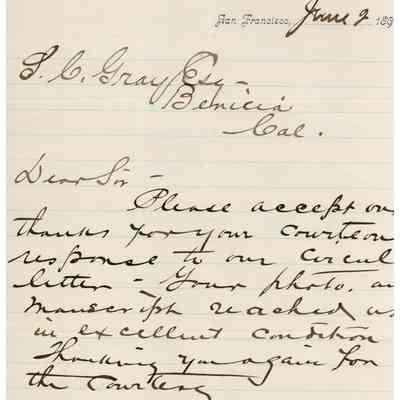 San Francisco, June 9 189
S. C. Gray Esq-
Benicia
Cal.
Dear Sir-
Please accept our
thanks for your courteou
response to our circul
letter - Your photo. an
manuscript reached us
in excellent condition
Thanking you again for
the courtesy